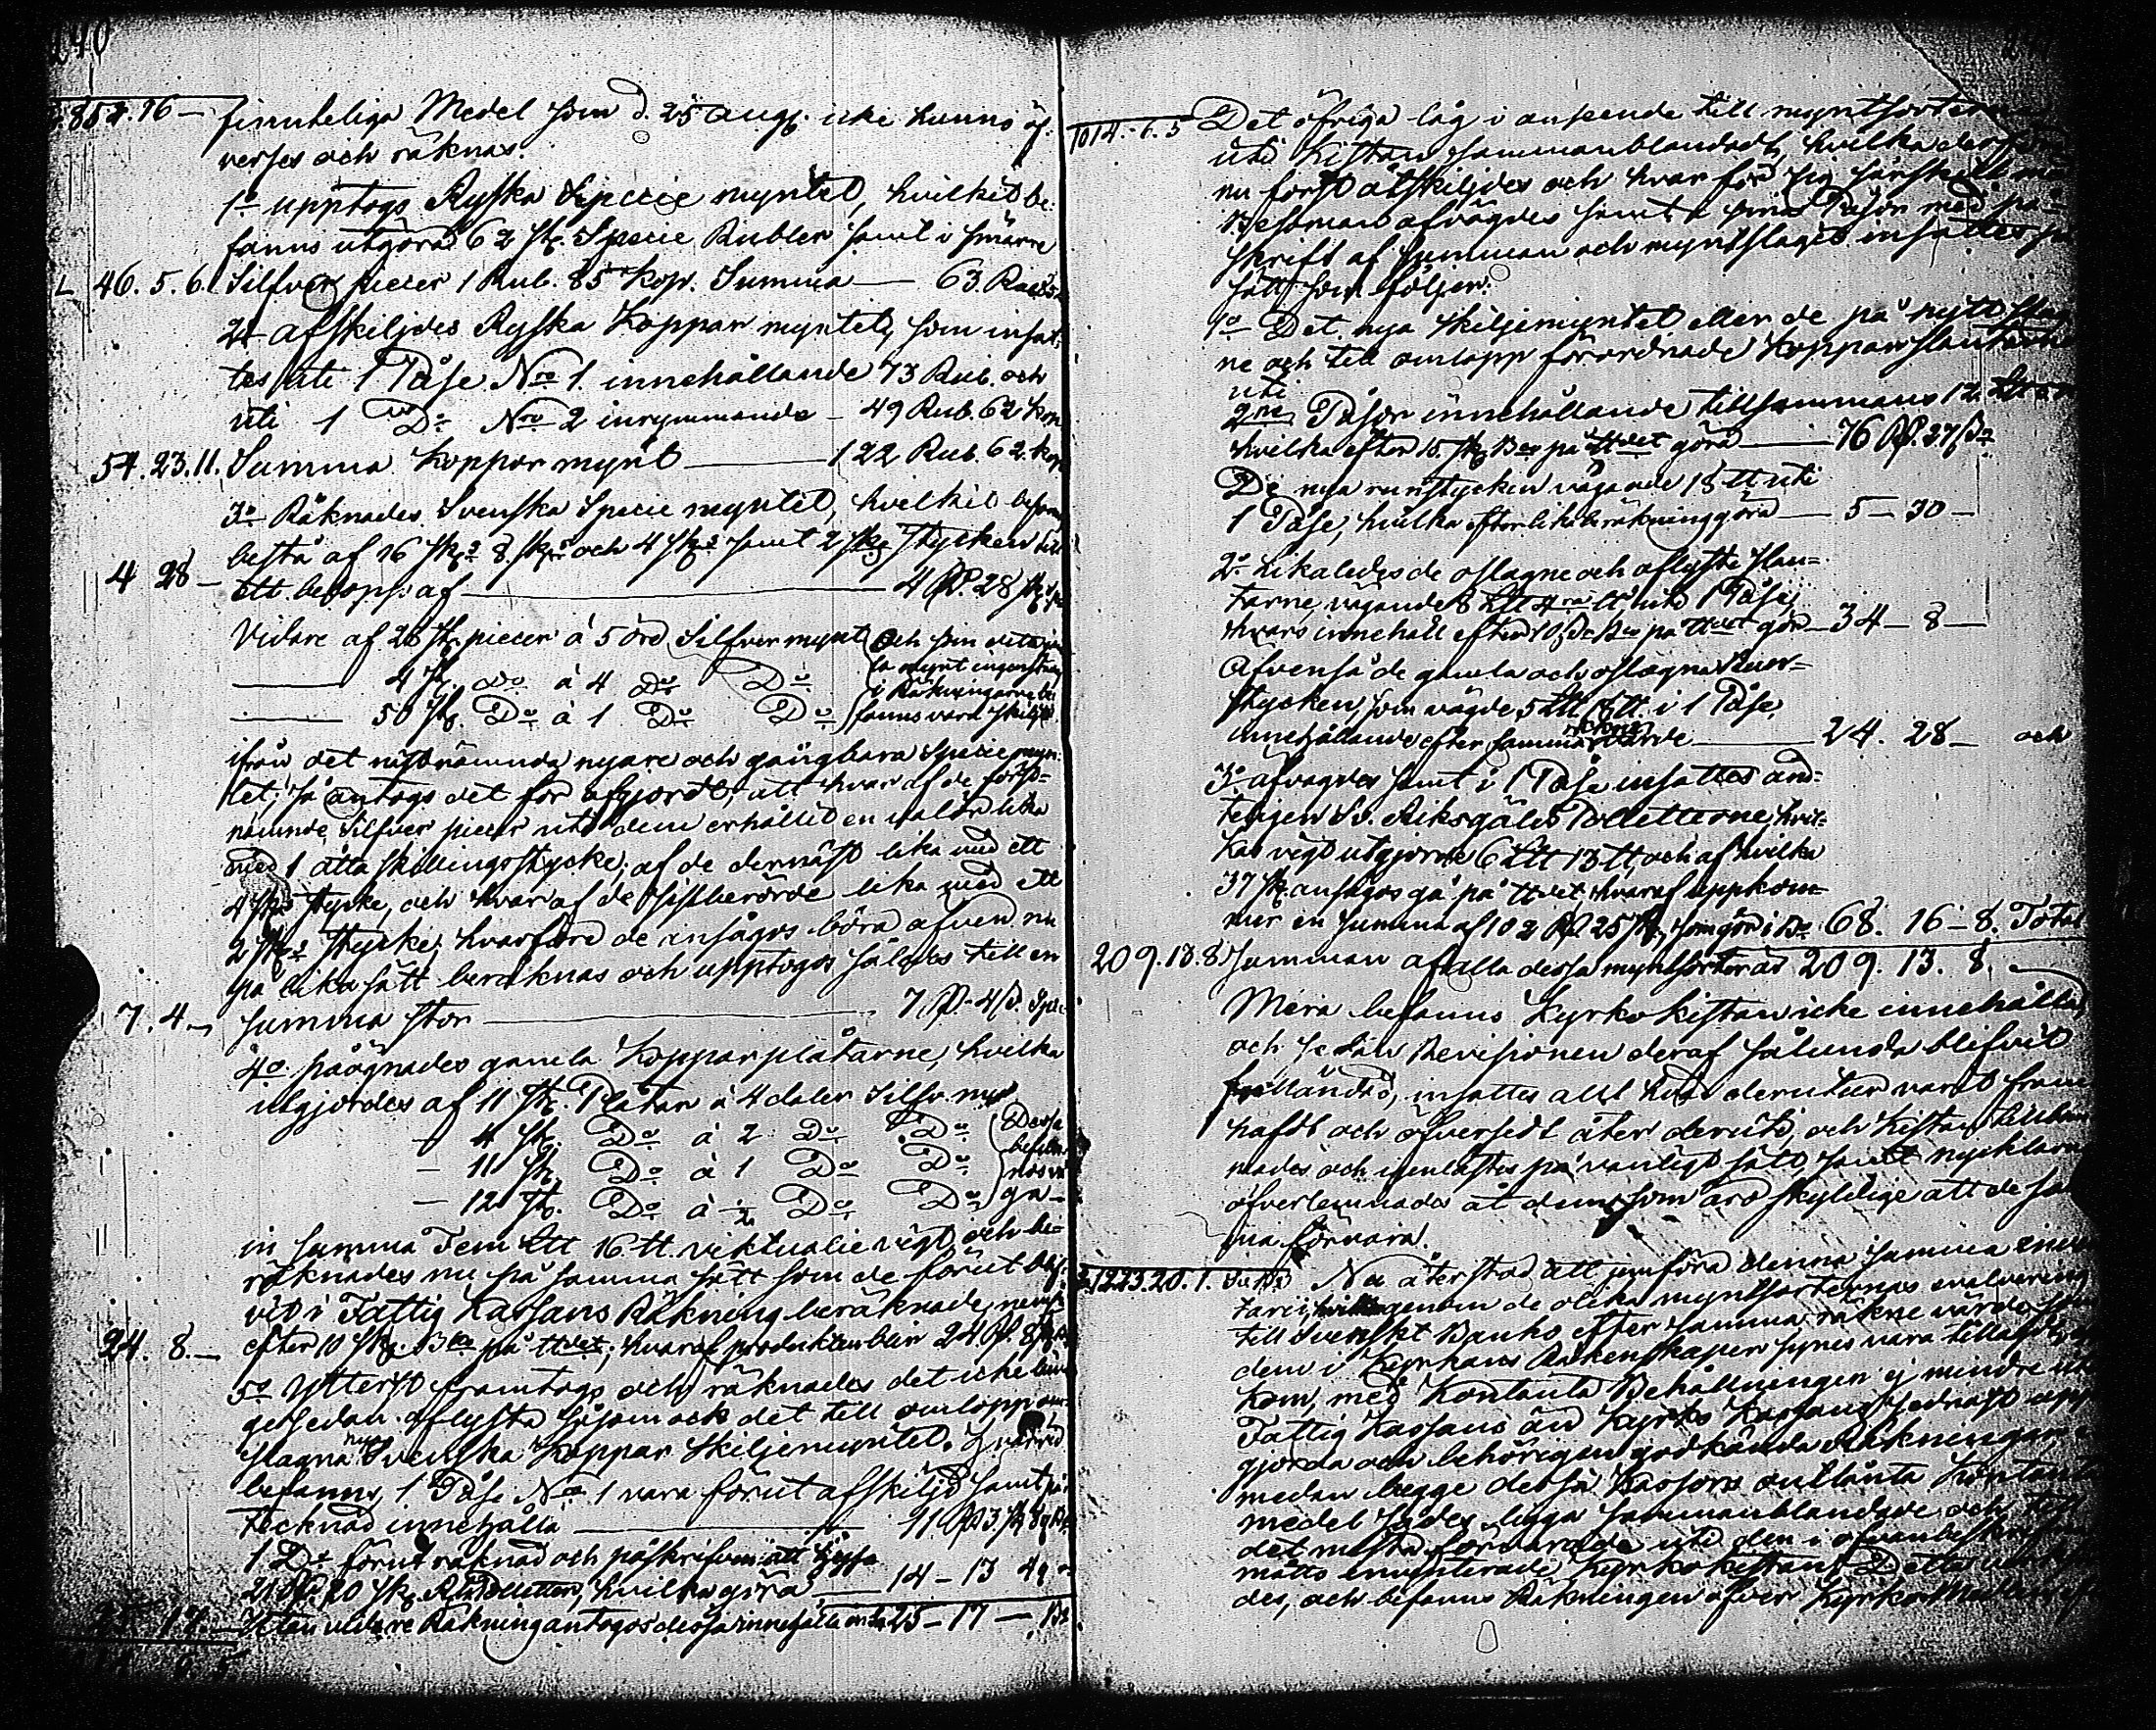 140
852.16 — finnteliga Medel som d. 25 Aug. icke hunno öf-
verses och räknas.
1o upptogs Ryska Specie myntet, hvilket be-
fanns utgöra 62 st. Specie Rubler samt i smärre
46. 5. 6. Silfver piecer 1 Rub. 85 kop. Summa — 63 Rub. 85
2o afskiljdes Ryska Koppar myntet, som insat-
tes uti 1 Påse No 1. innehållande 73 Rub. och
uti 1 Do No 2 inrymmande — 49 Rub. 62 kop
54. 23. 11. Summa Koppar mynt — 122 Rub. 62. kop
3o Räknades Svenska Specie myntet, hvilket befans
bestå af 16 sk. 8. sk. och 4 sk. samt 2 sk. stycken till
4 28 — ett belopp af — 4 Rd. 28 sk.
Vidare af 28 st. piecer á 5 öre Silfver mynt
— 4 st. Do á 4 Do Do
— 50 st. Do á 1 Do Do
och som detta
la mynt ingenstans
i Räkningarne be-
fanns vara skiljdt
ifrån det nystnämnda nyare och gångbara Specie myn-
tet; så antogs det för afgjordt, att hvar af de först-
nämnde Silfver piecer uti dem erhållit en valör lika
med 1 åtta skillingsstycke; af de dernäst lika med ett
4 sk. stycke, och hvar af de sistberörde lika med ett
2 sk. stycke; hvarföre de ansågos böra äfven nu
på lika sätt beräknas och upptogos således till en
7. 4. — Summa stor — 7 Rd. 4 s. Spec
4o påägnades gamla Kopparplåtarne, hvilka
utgjordes af 11 st. Plåtar á 4 daler Silfv. mt
— 4 st. Do á 2 Do Do
— 11 st. Do á 1 Do Do
— 12 st. Do á ½ Do Do
Dessa
befun-
nos vä-
ga —
in Summa Fem Ltt 16 tt. viktualie vigt och be-
räknades nu på samma sätt som de förut blif-
vit i Fattig Kassans Räkning beräknade, neml.
24. 8. — efter 10 sk. Bco på ttdet; hvaraf produkten blir 24 Rd. 8 sk.
5o Ytterst framtogs och räknades det icke län-
ge sedan aflysta såsom ock det till omlopp om-
slagna nya Svenska Koppar Skiljemyntet. Hvarvid
befanns, 1 Påse No 1 vara förut afskiljd samt på-
tecknad innehålla — 11 Rd 3 sk 8
1 Do förut räknad och påskrifven att hysa
21 Rd. 20 sk. Polletter, hvilka göra — 14 — 13 4
25 17. — Utan vidare Räkning antogos dessa innehålla 25 — 17 —
1014. 6. 5

1014. 6. 5 Det öfriga låg i anseende till myntsorterne
uti Kistan sammanblandadt, hvilka derföre
nu först åtskiljdes och hvar för sig särskildt med
Bessman afvägdes samt i sina Påsor med på-
skrift af summan och myntslaget insattes på
sätt som följer:
1o Det nya Skiljemyntet eller de på nytt slag-
ne och till omlopp förordnade Koppar slantarne
uti
2ne Påsor innehållande tillsammans 12
hvilka efter 15. sk. Bco på ttdet göra — 76 Rd. 27 s.
De nya runstycken vägande 18 tt uti
1 Påse, hvilka efter lika beräkning göra — 5 — 30 —
2o Likaledes de oslagne och aflyste slan-
tarne, vägande 8 Ltt 4ra tt, uti 1 Påse,
hvars innehåll efter 10 s. Bco på ttdet gör — 34 — 8 —
Äfvenså de gamla och oslagna Run-
stycken, som vägde 5 Ltt 18 tt. i 1 Påse,
innehållande efter samma räknevärde — 24. 28 — och
3o afvägdes samt i 1 Påse insattes änd-
teligen Sv. Riksgälds Polletterne, hvil-
kas vigt utgjorde 6 Ltt 13 tt, och af hvilka
37 sk. ansågos gå på ttdet, hvaraf uppkom-
mer en summa af 102 Rd 25 sk., som gör i Bco 68. 16 — 8. Total
209. 13. 8. Summan af alla dessa myntsorter är 209. 13. 8.
Mera befanns Kyrkokistan icke innehålla,
och sedan Revisionen deraf sålunda blifvit
fulländad, insattes allt hvad derutur varit fram-
haft och öfversedt åter deruti, och Kistan tillbom-
mades och igenlästes på vanligt sätt, samt nycklarne
öfverlemnades åt dem som äro skyldige att de sam-
ma förvara.
1223. 20. 1. Nu återstod att jemföra denna summa inven-
tarii, genom de olika myntsorternas evalvering
till Svenskt Banko efter samma räkne värde som
dem i Kyrkans Räkenskaper synes vara tillagdt
kom, med Kontanta Behållningen ej mindre uti
Fattig Kassans än Kyrko Kassans sednast upp-
gjorda och behörigen godkända Räkningar,
medan begge dessa Kassors outlånta Kontanta
medel sådes ligga sammanblandade och till
det mesta förvarade uti den i ofvanbeskrifne
måtto inventerade Kyrkokistan. Detta
des, och befanns Räkningen öfver Kyrko